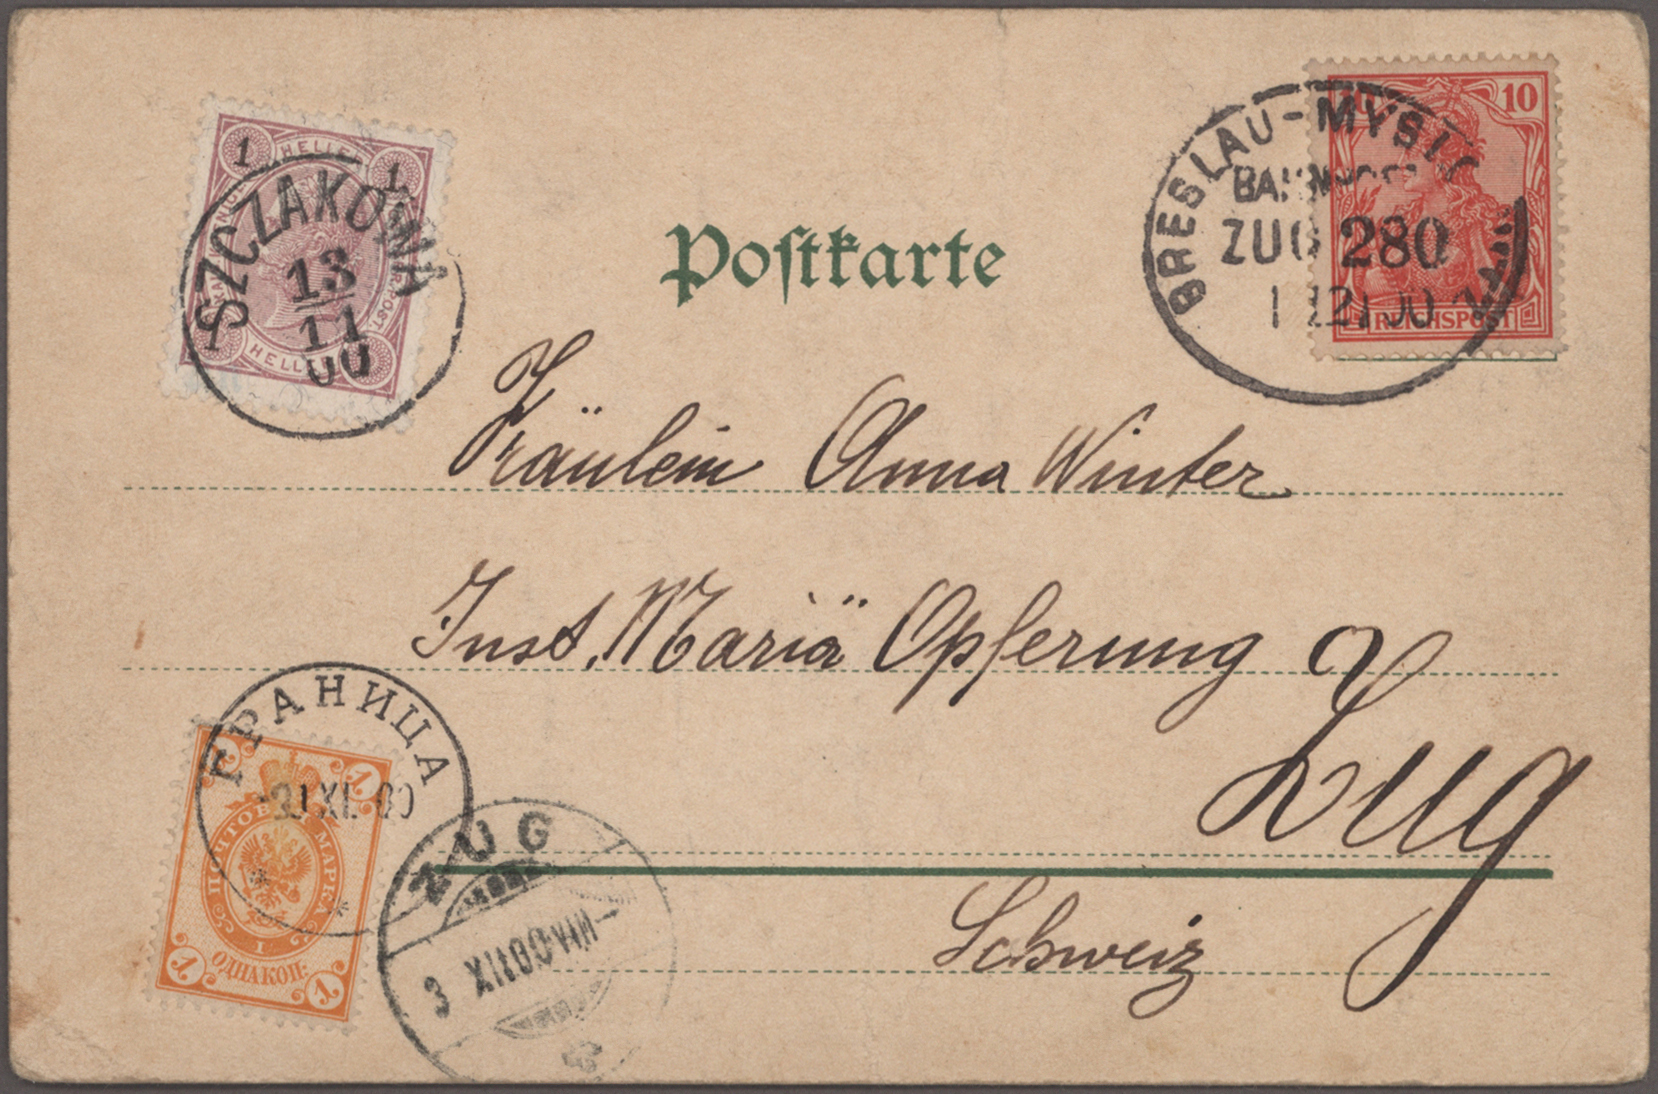 1 HELLER 1
SZCZAKOWA
13
11
00
HELLER
Postkarte
10
BRESLAU-MYSŁ
ZUG 280
REICHSPOST
Fräulein Anna Winter
Inst. Mariä Opferung
Zug
Schweiz
ГРАНИЦА
XI. 00
1 1
ПОЧТОВ МАРКА
1
ОДНА КОП:
1 1
ZUG
3 XII.00